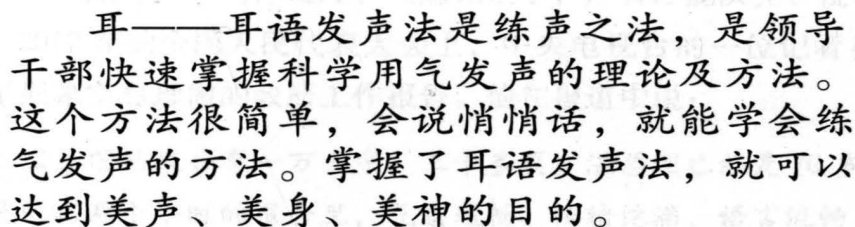 耳——耳语发声法是练声之法，是领导
干部快速掌握科学用气发声的理论及方法。
这个方法很简单，会说悄悄话，就能学会练
气发声的方法。掌握了耳语发声法，就可以
达到美声、美身、美神的目的。